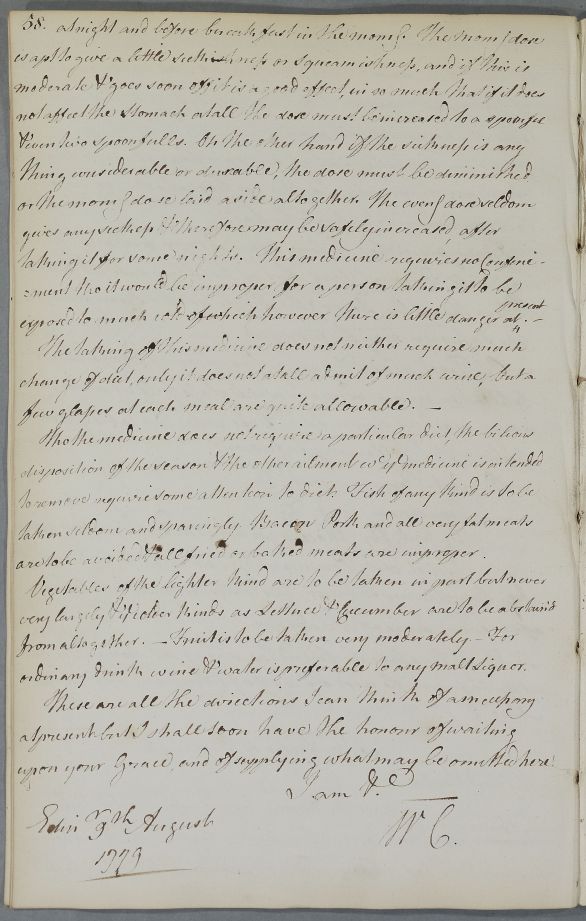 58. at night and before breakfast in the morng. The morng dose
is apt to give a little sickishness or squeamishness, and if this is
moderate & goes soon off it is a good effect, in so much that if it does
not affect the stomach at all the dose must be increased to a spoonful
& even two spoonfulls. On the other hand if the sickness is any
thing considerable or durable, the dose must be diminished
or the morng dose laid aside altogether. The eveng dose seldom
gives any sickness & therefore may be safely increased after
taking it for some nights. This medicine requires no confine-
-ment tho it would be improper for a person taking it to be
exposed to much cold of which however there is little danger at present. -
The taking of this medicine does not neither require much
change of diet, only it does not at all admit of much wine, but a
few glasses at each meal are quite allowable. —
Tho the medicine does not require a particular diet, the bilious
disposition of the season & the other ailment wc. ye medicine is intended
to remove require some attention to diet. Fish of any kind is to be
taken seldom and sparingly. Bacon Pork and all very fat meats
are to be avoided & all fried or baked meats are improper.
Vegetables of the lighter kind are to be taken in part but never
very largely & other kinds as Lettuce & Cucumber are to be abstain'd
from altogether. — Fruit is to be taken very moderately. — For
ordinary drink wine & water is preferable to any malt Liquor.
These are all the directions I can think of as necessary
at present but I shall soon have the honour of waiting
upon your Grace, and of supplying what may be omitted here.
I am &c
Edinr 9th August
1779
W C.